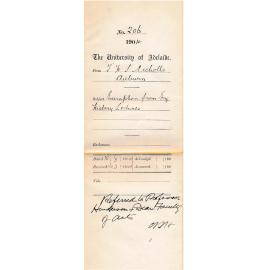 No. 206
1904.
The University of Adelaide.
From T. H. S. Nicholls
Auburn
Subject Exemption from Eng
History Lectures
Enclosures
Dated
Received
Title
Referred to Professor
Henderson & Dean Faculty
of Arts